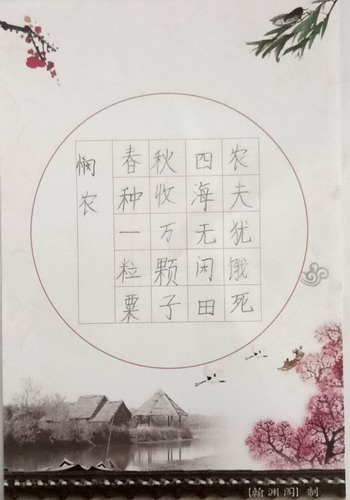 悯农
春种一粒粟
秋收万颗子
四海无闲田
农夫犹饿死
[翰渊阁] 制